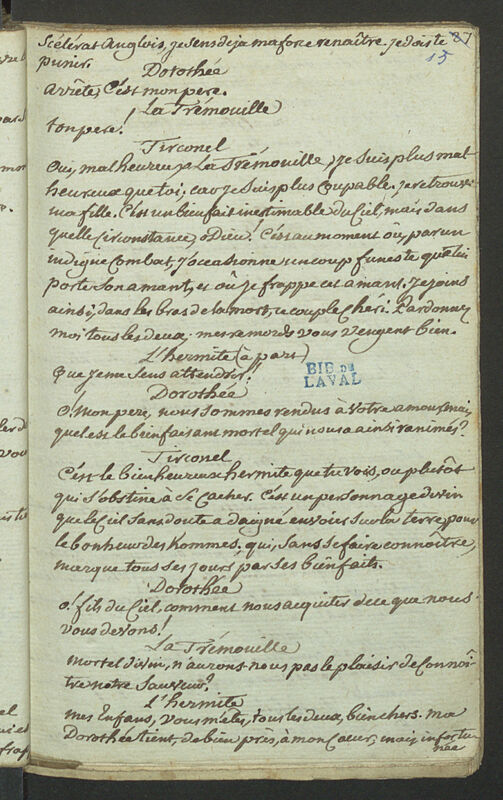 Scélérat Anglois, je sens déja ma force renaître. je dois te 87
punir. 15
Dorothée
arrête, C'est mon pere.
La Trémouille
ton pere!
Tirconel
Oui, malheureux La Trémouille, je suis plus mal
heureux que toi; car je suis plus Coupable. je retrouve
ma fille. C'est un bienfait inestimable du Ciel, mais dans
quelle Circonstance, ô Dieu! C'est au moment où, par un
indigne Combat, j'occasionne un coup funeste que lui
porte son amant, et où je frappe cet amant. je joins
ainsi, dans les bras de la mort, ce couple Chéri. Pardonnez
moi tous les deux; mes remords vous vengent bien.
L'hermite (à part)
Que je me sens attendrir!
BIB DE
LAVAL
Dorothée
O! mon pere, nous sommes rendus à votre amour, mais
quel est le bienfaisant mortel qui nous a ainsi ranimés?
Tirconel
C'est le bienheureux hermite que tu vois, ou plutôt
qui s'obstine à se Cacher. C'est un personnage divin
que le Ciel sans doute a daigné envoier sur la terre, pour
le bonheur des hommes, qui, sans se faire connoître,
marque tous ses jours par ses bienfaits.
Dorothée
ô! fils du Ciel, comment nous acquiter de ce que nous
vous devons!
La Trémouille
mortel divin, n'aurons-nous pas le plaisir de Connoî
tre notre Sauveur?
L'hermite
mes Enfans, vous m'etes, tous les deux, bien chers. ma
Dorothée tient, de bien près, à mon Cœur; mais infortu
née